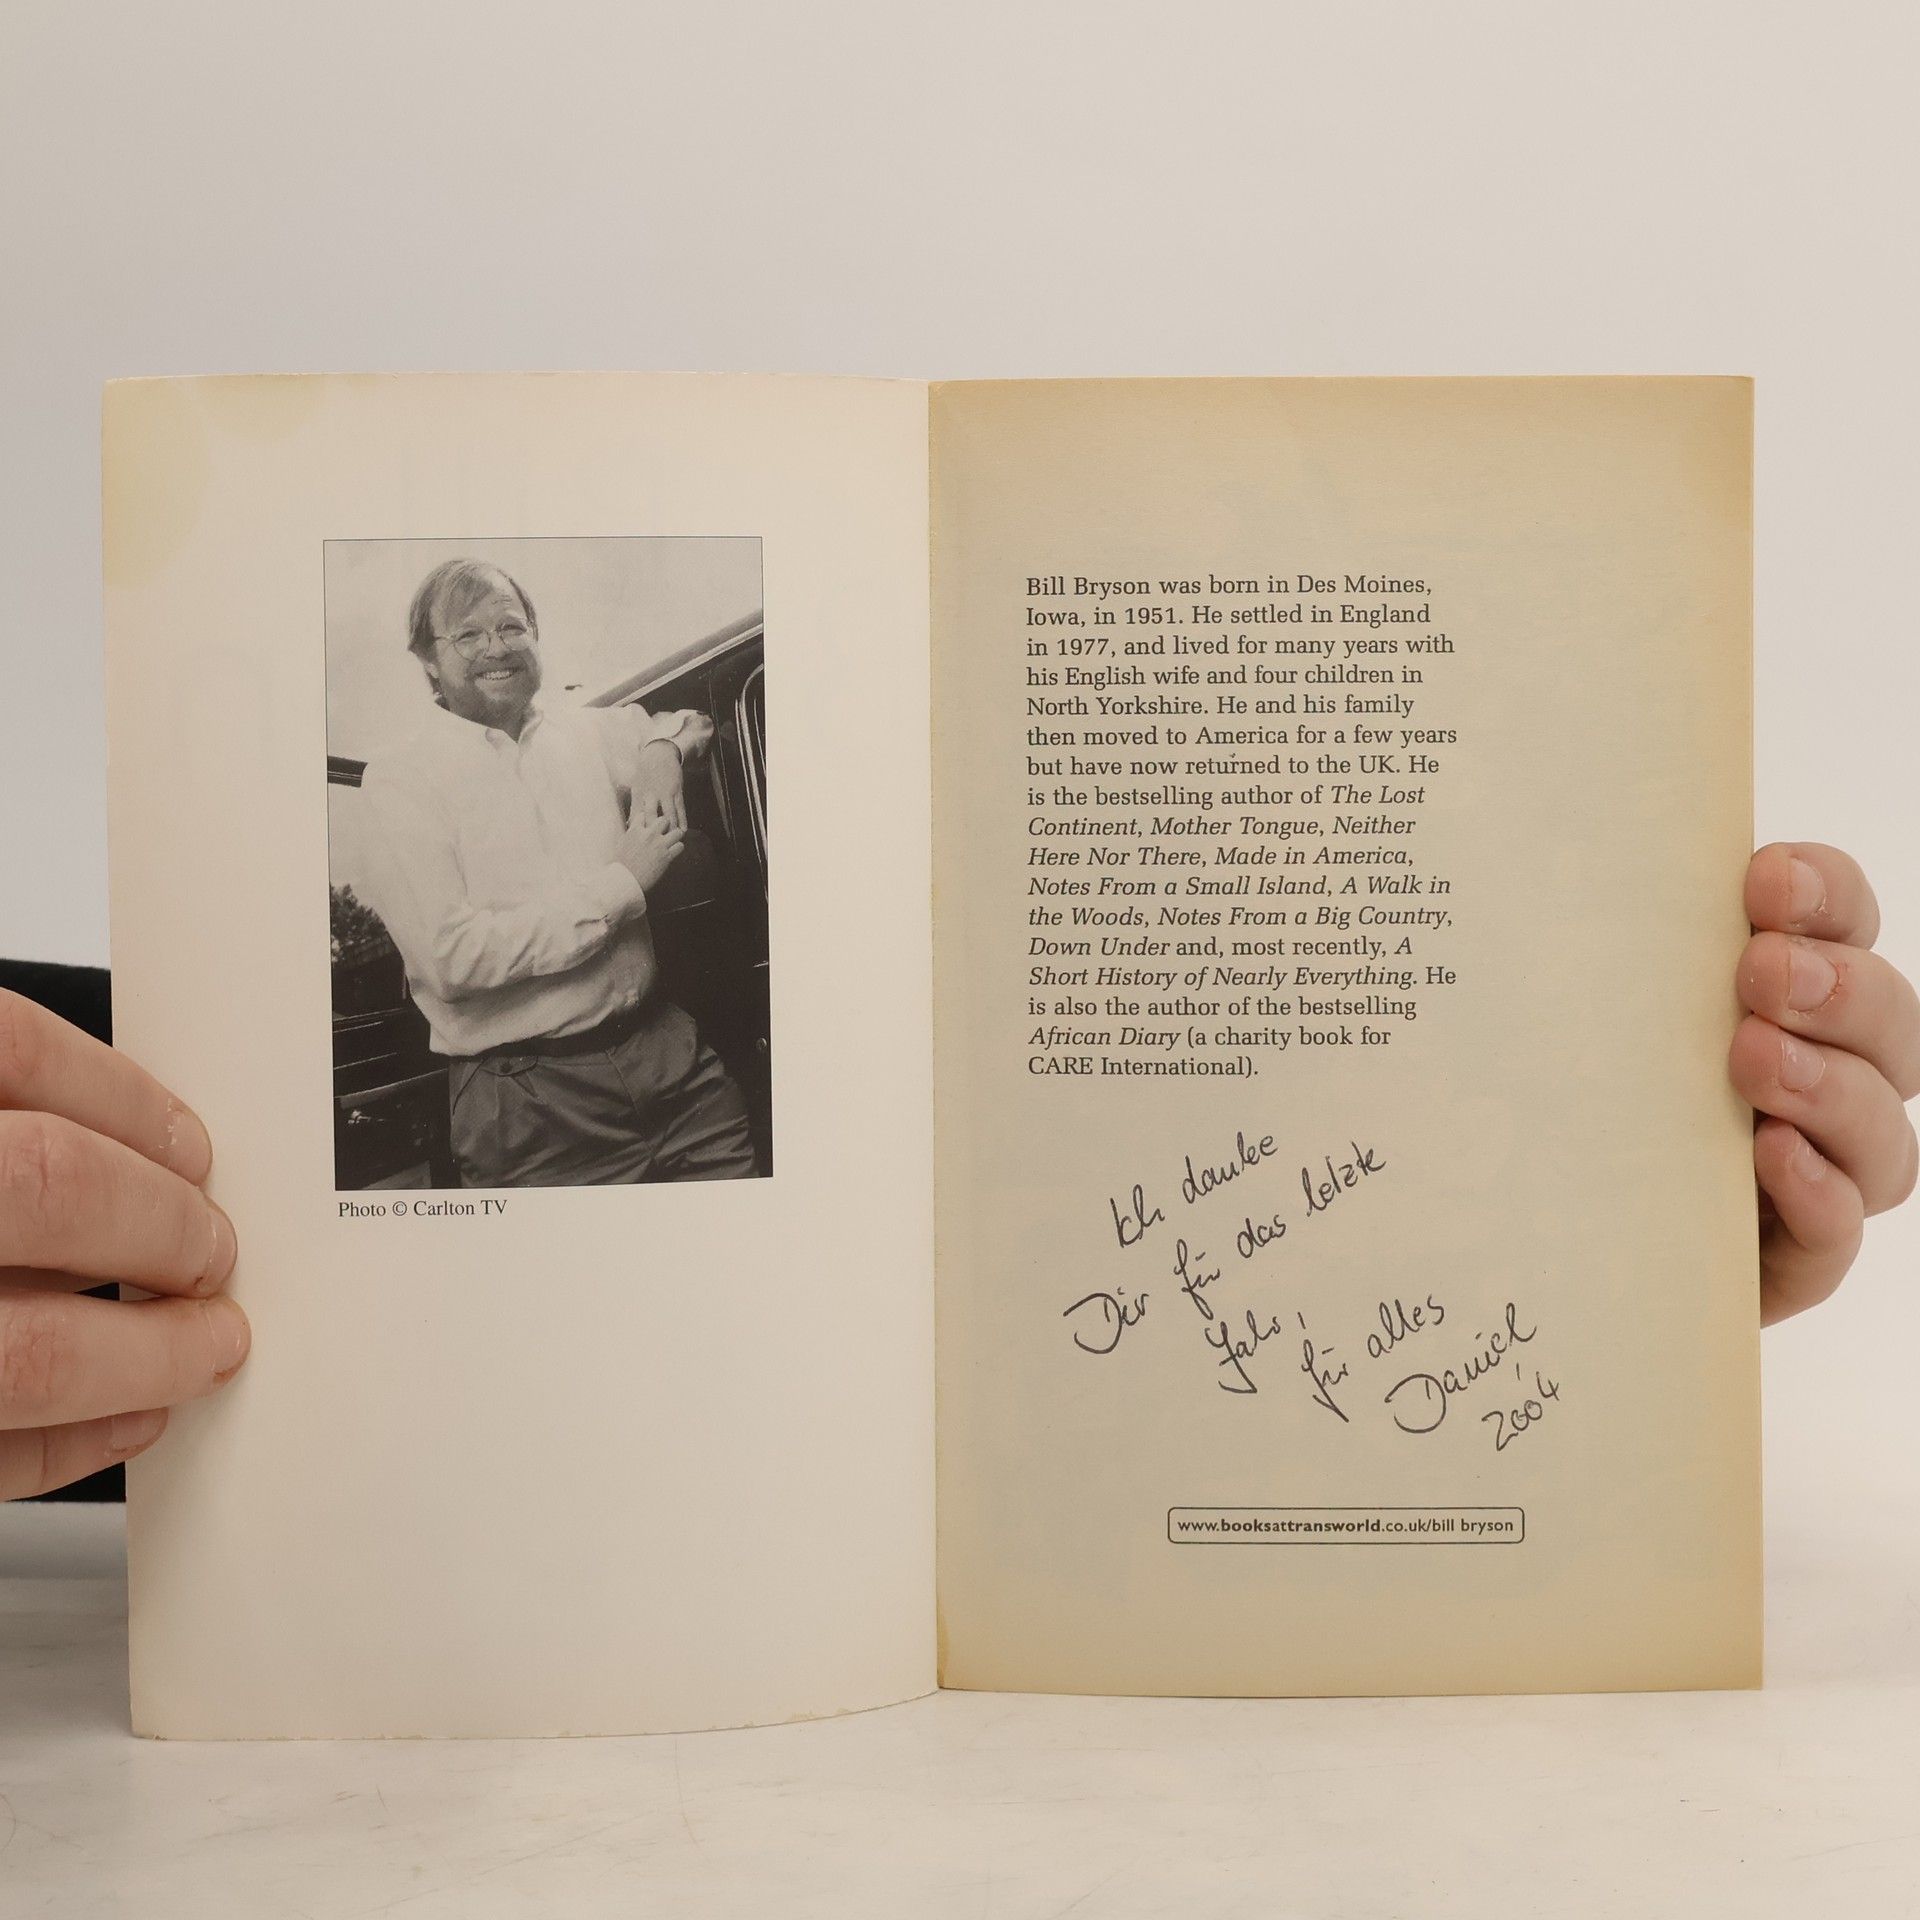 Photo © Carlton TV
Bill Bryson was born in Des Moines,
Iowa, in 1951. He settled in England
in 1977, and lived for many years with
his English wife and four children in
North Yorkshire. He and his family
then moved to America for a few years
but have now returned to the UK. He
is the bestselling author of The Lost
Continent, Mother Tongue, Neither
Here Nor There, Made in America,
Notes From a Small Island, A Walk in
the Woods, Notes From a Big Country,
Down Under and, most recently, A
Short History of Nearly Everything. He
is also the author of the bestselling
African Diary (a charity book for
CARE International).
Ich danke
Dir für das letzte
Jahr,
für alles
Daniel,
2004
www.booksattransworld.co.uk/bill bryson